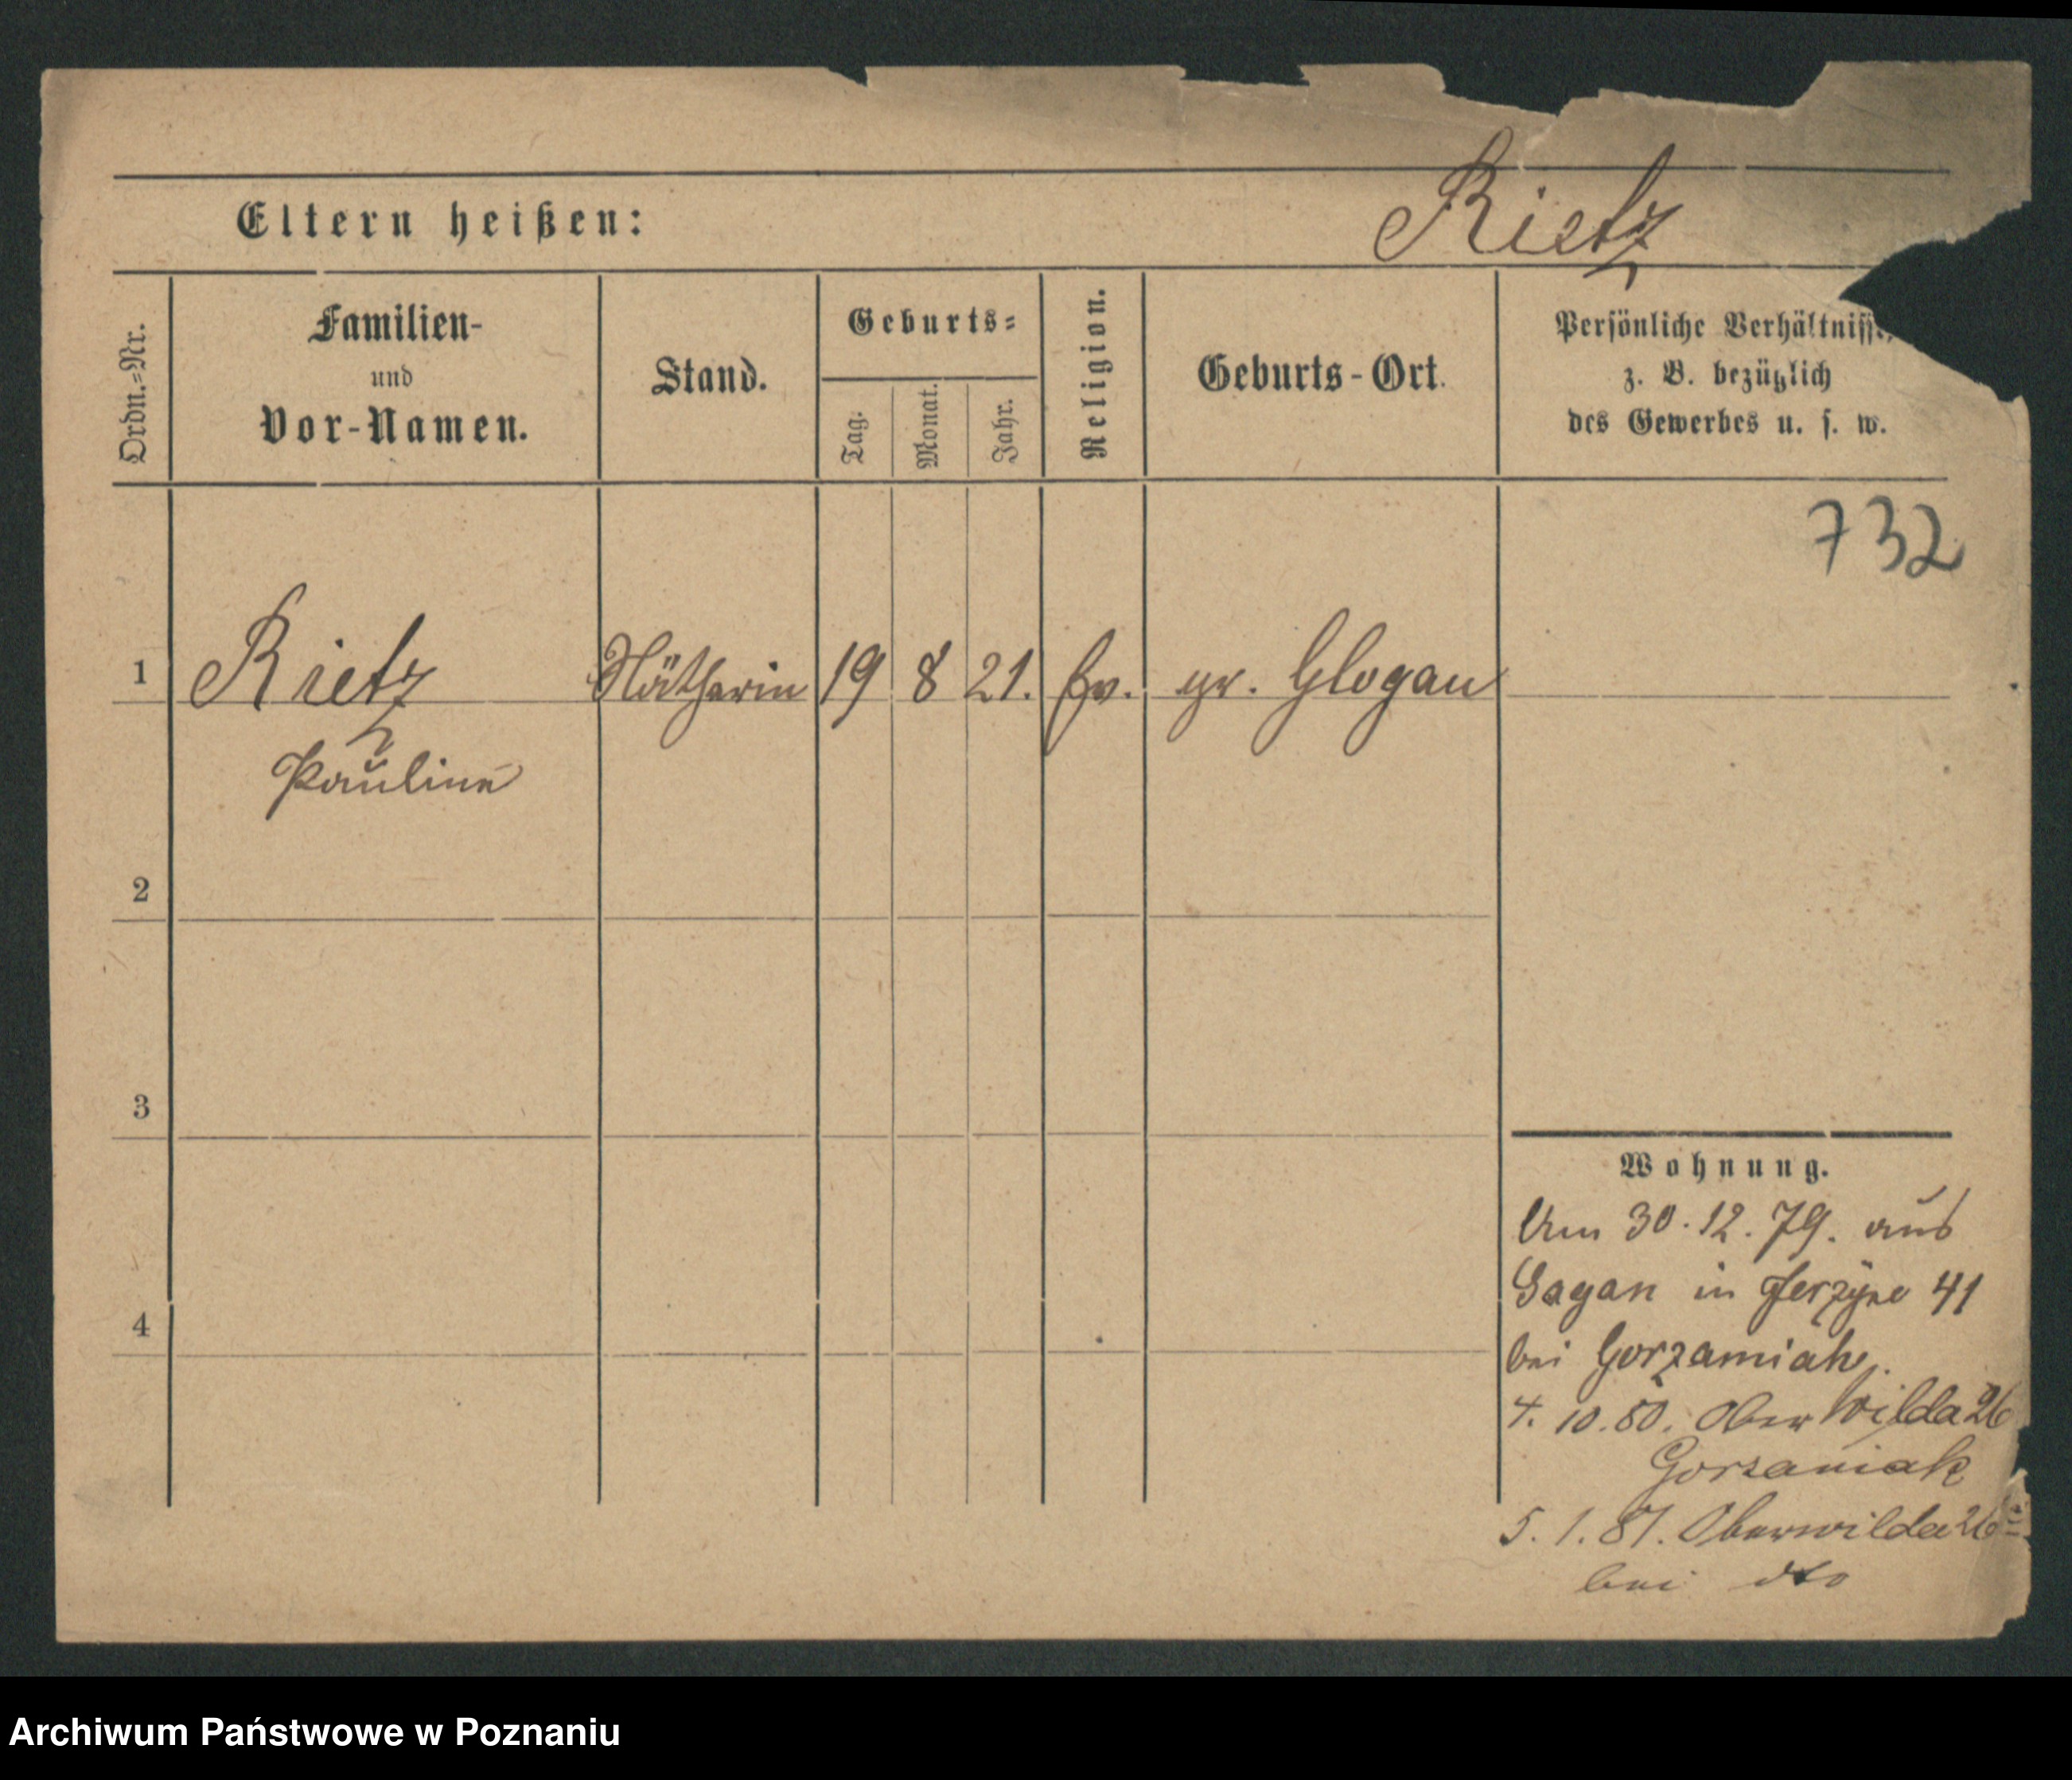 Rietz
Eltern heißen:
Ordn.=Nr.
Familien-
und
Vor-Namen.
Stand.
Geburts=
Tag.
Monat.
Jahr.
Religion.
Geburts-Ort.
Persönliche Verhältnisse,
z. B. bezüglich
des Gewerbes u. s. w.
732
1 Rietz Nätherin 19 8 21. Ev. gr. Glogau
Pauline
2
3
4
Wohnung.
Um 30.12.79. aus
Sagan in Jerzyce 41
bei Gorzamiak.
4. 10. 80. Ober Wilda 26
Gorzaniak
5. 1. 81. Oberwilda 26
bei dto
Archiwum Państwowe w Poznaniu